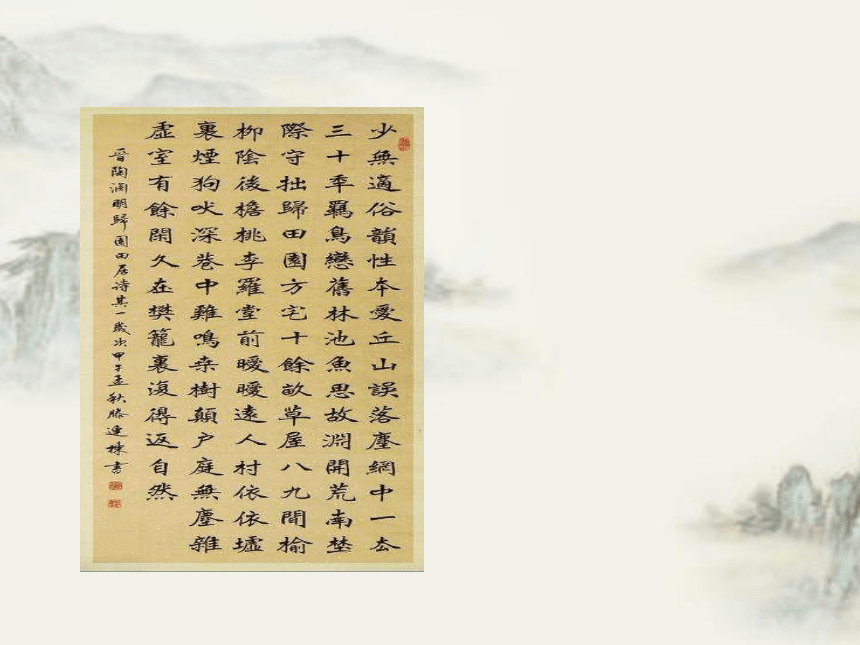 少無適俗韻性本愛丘山誤落塵網中一去
三十年羈鳥戀舊林池魚思故淵開荒南埜
際守拙歸田園方宅十餘畝草屋八九間榆
柳陰後檐桃李羅堂前曖曖遠人村依依墟
裏煙狗吠深巷中雞鳴桑樹顛户庭無塵雜
虛室有餘閑久在樊籠裏復得返自然
晉陶淵明歸園田居诗其一歲次甲午孟秋滕連棟書